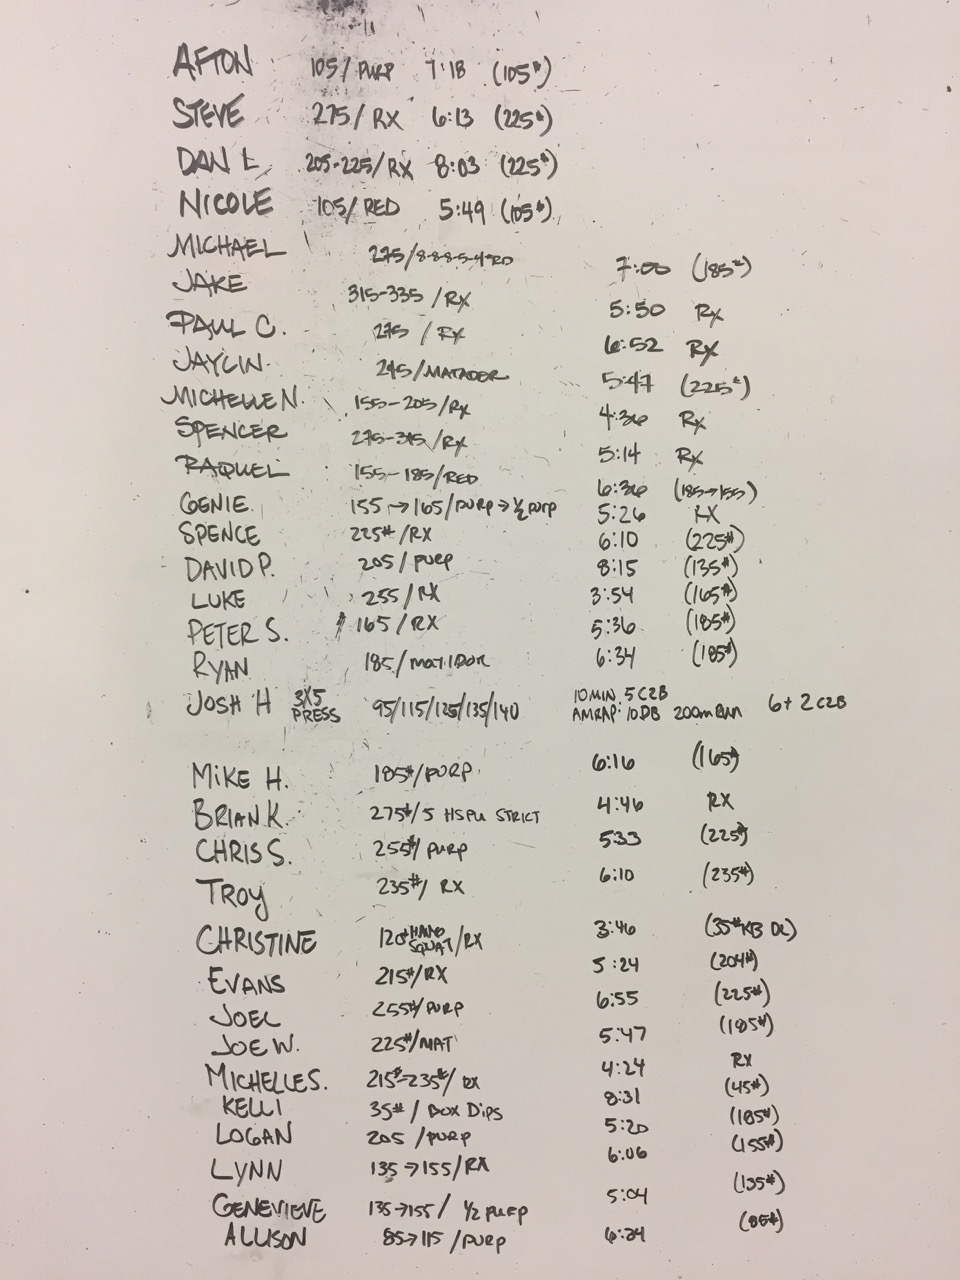 AFTON 105/PURP 7:18 (105#)
STEVE 275/RX 6:13 (225#)
DAN L 205-225/RX 8:03 (225#)
NICOLE 105/RED 5:49 (105#)
MICHAEL 275/8-8-8-5-4 RD 7:00 (185#)
JAKE 315-335/RX 5:50 RX
PAUL C. 275/RX 6:52 RX
JAYLIN 245/MATADOR 5:47 (225#)
MICHELLE N. 155-205/RX 4:36 RX
SPENCER 275-315/RX 5:14 RX
RAQUEL 155-185/RED 6:36 (185→155)
GENIE 155→165/PURP→½PURP 5:26 RX
SPENCE 225#/RX 6:10 (225#)
DAVID P. 205/PURP 8:15 (135#)
LUKE 255/RX 3:54 (165#)
PETER S. 165/RX 5:36 (185#)
RYAN 185/MATIDOR 6:34 (185#)
JOSH H 3X5 PRESS 95/115/125/135/140 10 MIN AMRAP: 5 C2B 10 DB 200m RUN 6+2 C2B
MIKE H. 185#/PURP 6:16 (165#)
BRIAN K. 275#/5 HSPU STRICT 4:46 RX
CHRIS S. 255#/PURP 5:33 (225#)
TROY 235#/RX 6:10 (235#)
CHRISTINE 120# HAND SQUAT/RX 3:46 (35# KB DL)
EVANS 215#/RX 5:24 (204#)
JOEL 255#/PURP 6:55 (225#)
JOE W. 225#/MAT 5:47 (185#)
MICHELLE S. 215#-235#/RX 4:24 RX
KELLI 35#/BOX DIPS 8:31 (45#)
LOGAN 205/PURP 5:20 (185#)
LYNN 135→155/RX 6:06 (155#)
GENEVIEVE 135→155/ 1/2 PURP 5:04 (135#)
ALLISON 85→115/PURP 6:24 (85#)